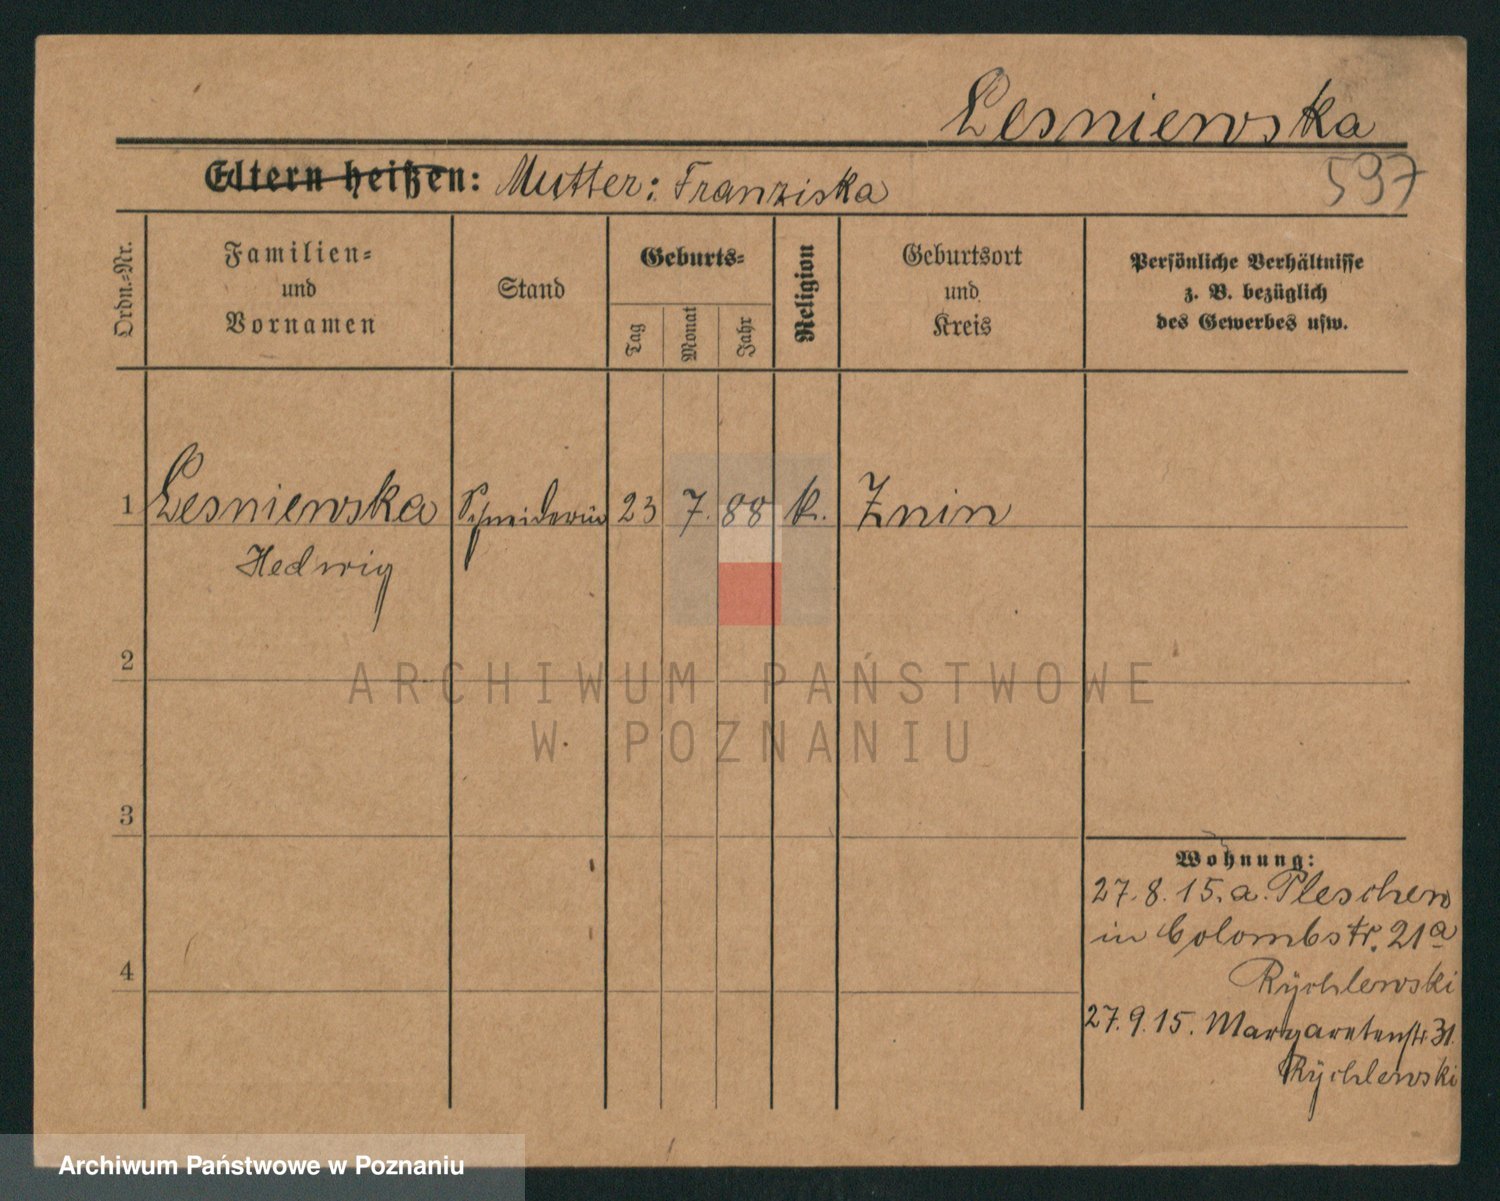 Lesniewska
Eltern heißen: Mutter: Franziska
537
Ordn.-Nr.
Familien-
und
Vornamen
Stand
Geburts-
Tag
Monat
Jahr
Religion
Geburtsort
und
Kreis
Persönliche Verhältnisse
z. B. bezüglich
des Gewerbes usw.
1 Lesniewska Schneiderin 23 7. 88 k. Znin
Hedwig
2
ARCHIWUM PAŃSTWOWE
W POZNANIU
3
Wohnung:
27. 8. 15. a. Pleschen
in Colombstr. 21a
Rÿchlewski
4
27. 9. 15. Margaretenstr 31.
Rÿchlewski
Archiwum Państwowe w Poznaniu